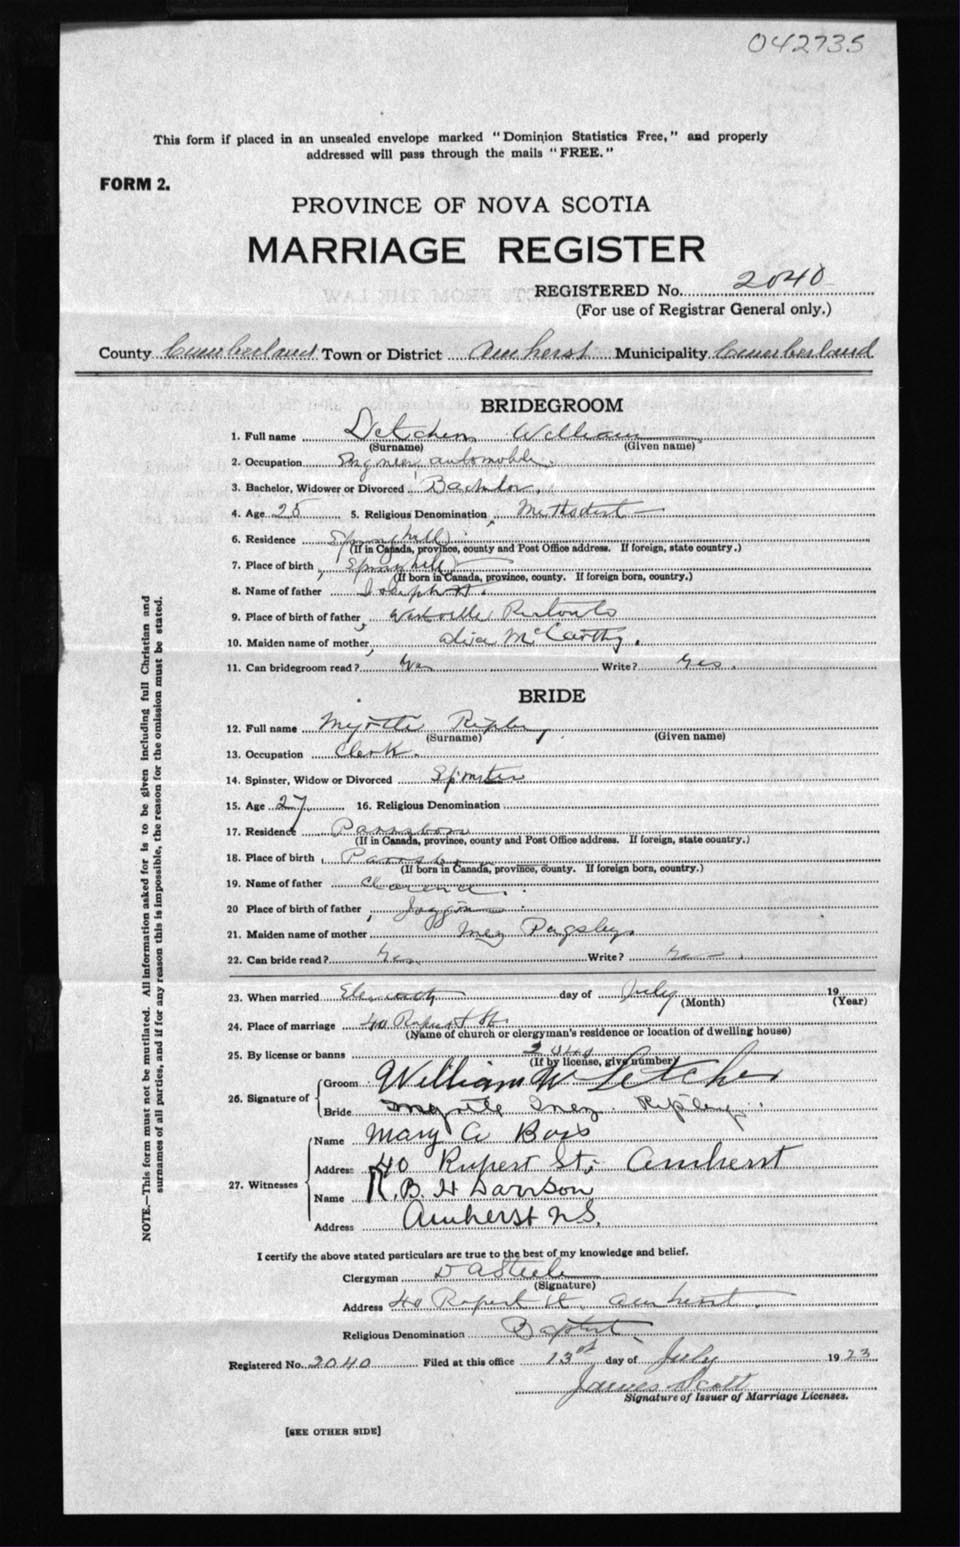 042735
This form if placed in an unsealed envelope marked "Dominion Statistics Free," and properly
addressed will pass through the mails "FREE."
FORM 2.
PROVINCE OF NOVA SCOTIA
MARRIAGE REGISTER
REGISTERED No. 2040
(For use of Registrar General only.)
County Cumberland Town or District Amherst Municipality Cumberland
BRIDEGROOM
1. Full name Letcher William
(Surname) (Given name)
2. Occupation Engineer automobile
3. Bachelor, Widower or Divorced Bachelor.
4. Age 25 5. Religious Denomination Methodist
6. Residence Springhill
(If in Canada, province, county and Post Office address. If foreign, state country.)
7. Place of birth Springhill
(If born in Canada, province, county. If foreign born, country.)
8. Name of father Joseph H.
9. Place of birth of father Westville Pictou Co
10. Maiden name of mother Alica McCarthy.
11. Can bridegroom read? Yes Write? Yes.
BRIDE
12. Full name Myrtle Ripley
(Surname) (Given name)
13. Occupation Clerk.
14. Spinster, Widow or Divorced Spinster
15. Age 27 16. Religious Denomination
17. Residence Parrsboro
(If in Canada, province, county and Post Office address. If foreign, state country.)
18. Place of birth Parrsboro
(If born in Canada, province, county. If foreign born, country.)
19. Name of father Clarence.
20 Place of birth of father Joggins
21. Maiden name of mother Pugsley.
22. Can bride read? Yes Write? Yes.
23. When married Eleventh day of July 19
(Month) (Year)
24. Place of marriage 40 Rupert St.
(Name of church or clergyman's residence or location of dwelling house)
25. By license or banns
(If by license, give number)
26. Signature of Groom William W Letcher
Bride Myrtle Inez Ripley.
27. Witnesses Name Mary A Boss
Address 40 Rupert St; Amherst
Name R. B. H Davison
Address Amherst N.S.
I certify the above stated particulars are true to the best of my knowledge and belief.
Clergyman D A Steele
(Signature)
Address 40 Rupert St. Amherst.
Religious Denomination Baptist
Registered No. 2040 Filed at this office 13th day of July 1923
James Scott
Signature of Issuer of Marriage Licenses.
[SEE OTHER SIDE]
NOTE.—This form must not be mutilated. All information asked for is to be given including full Christian and
surnames of all parties, and if for any reason this is impossible, the reason for the omission must be stated.